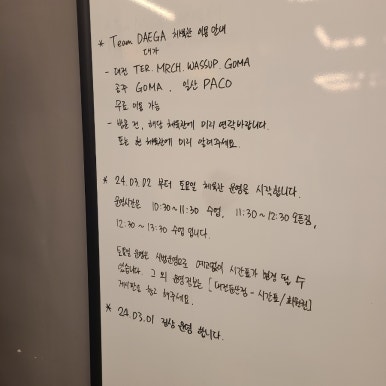 * Team DAEGA 체육관 이용 안내
대가
- 대전 TER. MRCH. WASSUP. GOMA
공주 GOMA. 일산 PACO
무료 이용 가능
- 방문 전, 해당 체육관에 미리 연락바랍니다.
또는 현 체육관에 미리 알려주세요.
* 24.03.02 부터 토요일 체육관 운영을 시작합니다.
운영시간은 10:30~11:30 수업, 11:30~12:30 오픈짐,
12:30~13:30 수업 입니다.
토요일 운영은 시범운영으로 예고없이 시간표가 변경 될 수
있습니다. 그 외 운영정보는 [대전둔산점 - 시간표/회원권]
게시판을 참고 해주세요.
* 24.03.01 정상 운영 합니다.